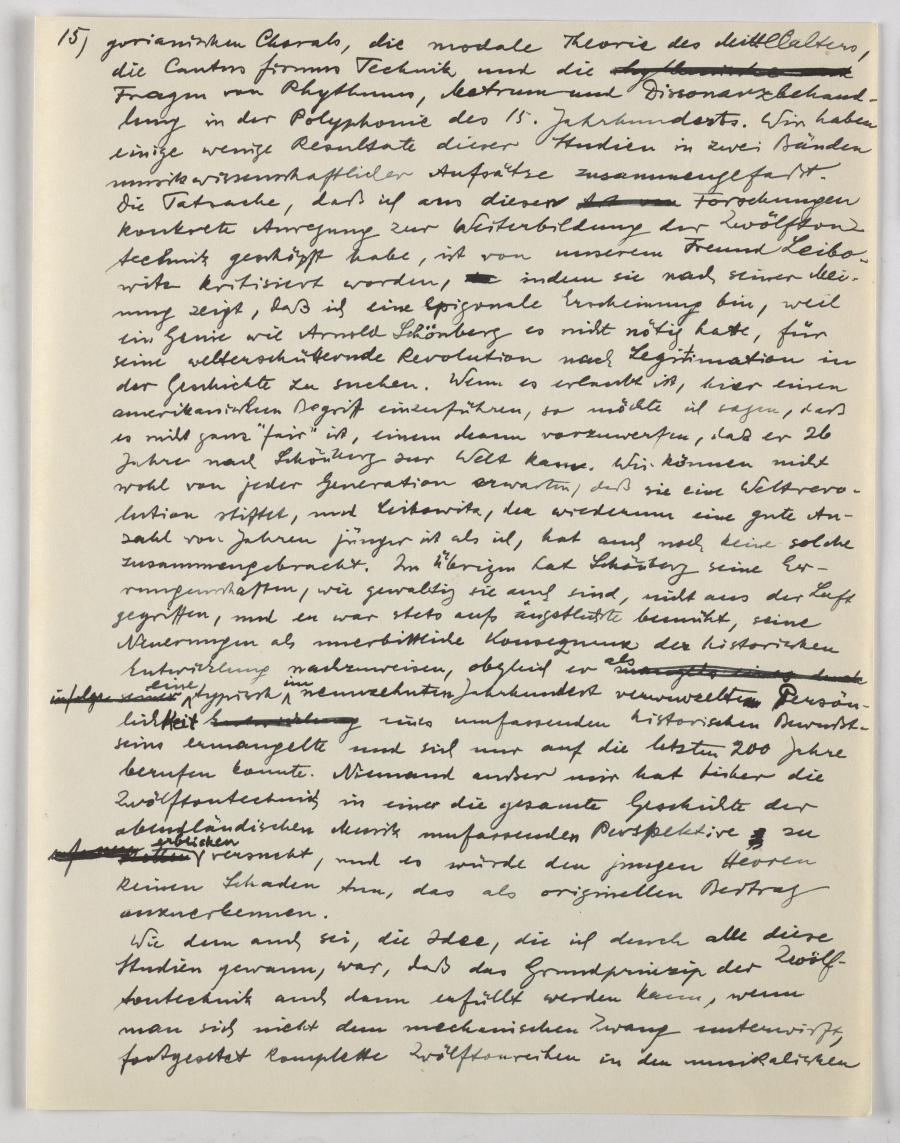 15) gorianischen Chorals, die modale Theorie des Mittelalters,
die Cantus firmus Technik und die
Fragen von Rhythmus, Metrum und Dissonanzbehand-
lung in der Polyphonie des 15. Jahrhunderts. Wir haben
einige wenige Resultate dieser Studien in zwei Bänden
musikwissenschaftlicher Aufsätze zusammengefaßt.
Die Tatsache, daß ich aus diesen Forschungen
konkrete Anregung zur Weiterbildung der Zwölfton-
technik geschöpft habe, ist von unserem Freund Leibo-
witz kritisiert worden, indem sie nach seiner Mei-
nung zeigt, daß ich eine epigonale Erscheinung bin, weil
ein Genie wie Arnold Schönberg es nicht nötig hatte, für
seine welterschütternde Revolution nach Legitimation in
der Geschichte zu suchen. Wenn es erlaubt ist, hier einen
amerikanischen Begriff einzuführen, so möchte ich sagen, daß
es nicht ganz "fair" ist, einem dann vorzuwerfen, daß er 26
Jahre nach Schönberg zur Welt kam. Wir können nicht
wohl von jeder Generation erwarten, daß sie eine Weltrevo-
lution stiftet, und Leibowitz, der wiederum eine gute An-
zahl von Jahren jünger ist als ich, hat auch noch keine solche
zusammengebracht. Im übrigen hat Schönberg seine Er-
rungenschaften, wie gewaltig sie auch sind, nicht aus der Luft
gegriffen, und er war stets aufs ängstlichste bemüht, seine
Neuerungen als unerbittliche Konsequenz der historischen
Entwicklung nachzuweisen, obgleich er als
eine typisch im neunzehnten Jahrhundert verwurzelte Persön-
lichkeit eines umfassenden historischen Bewußt-
seins ermangelte und sich nur auf die letzten 200 Jahre
berufen konnte. Niemand außer mir hat bisher die
Zwölftontechnik in einer die gesamte Geschichte der
abendländischen Musik umfassenden Perspektive zu
erblicken versucht, und es würde den jungen Herren
keinen Schaden tun, das als originellen Beitrag
anzuerkennen.
Wie dem auch sei, die Idee, die ich durch alle diese
Studien gewann, war, daß das Grundprinzip der Zwölf-
tontechnik auch dann erfüllt werden kann, wenn
man sich nicht dem mechanischen Zwang unterwirft,
fortgesetzt komplette Zwölftonreihen in den musikalischen